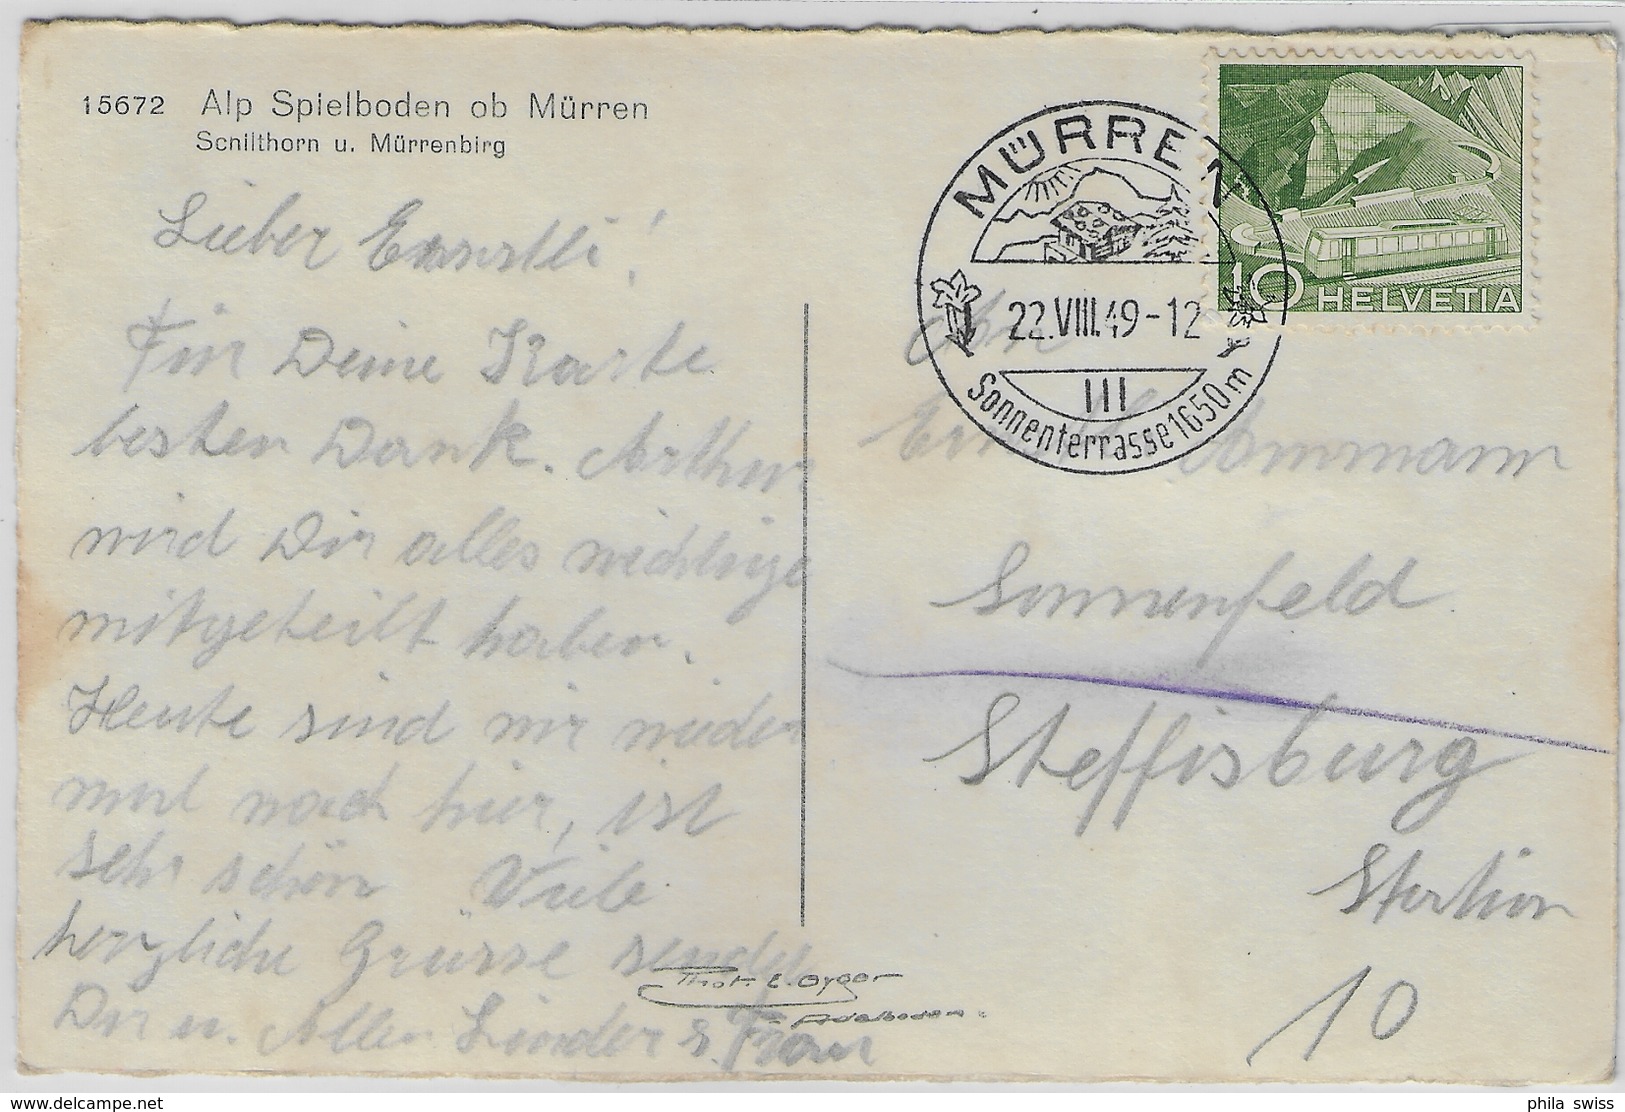 15672 Alp Spielboden ob Mürren
Schilthorn u. Mürrenbirg
Lieber Ernstli!
Für Deine Karte
besten Dank. Arthur
wird Dir alles wichtige
mitgeteilt haben.
Heute sind wir wieder
mal nach hier, ist
sehr schön Viele
herzliche Grüsse sendet
Dir u. Allen Linder & Frau
Phot. E. Gyger
Adelboden
MÜRREN
22.VIII.49-12
III
Sonnenterrasse 1650m
10 HELVETIA
Ammann
Sonnenfeld
Steffisburg
Station
10
delcampe.net
phila swiss